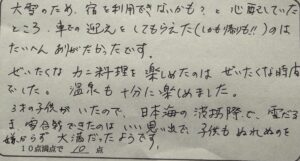 大雪のため、宿を利用できないかも？と心配していた
ところ、車での迎えをしてもらえた(しかも帰りも!!)のは
たいへんありがたかったです。
ぜいたくなカニ料理を楽しめたのはぜいたくな時間
でした。温泉も十分に楽しめました。
3才の子供がいたので、日本海の波打際で、雪だるま
雪合戦できたのはいい思い出で、子供もぬれるのを
嫌がらず大満だったようです。
10点満点で 10 点